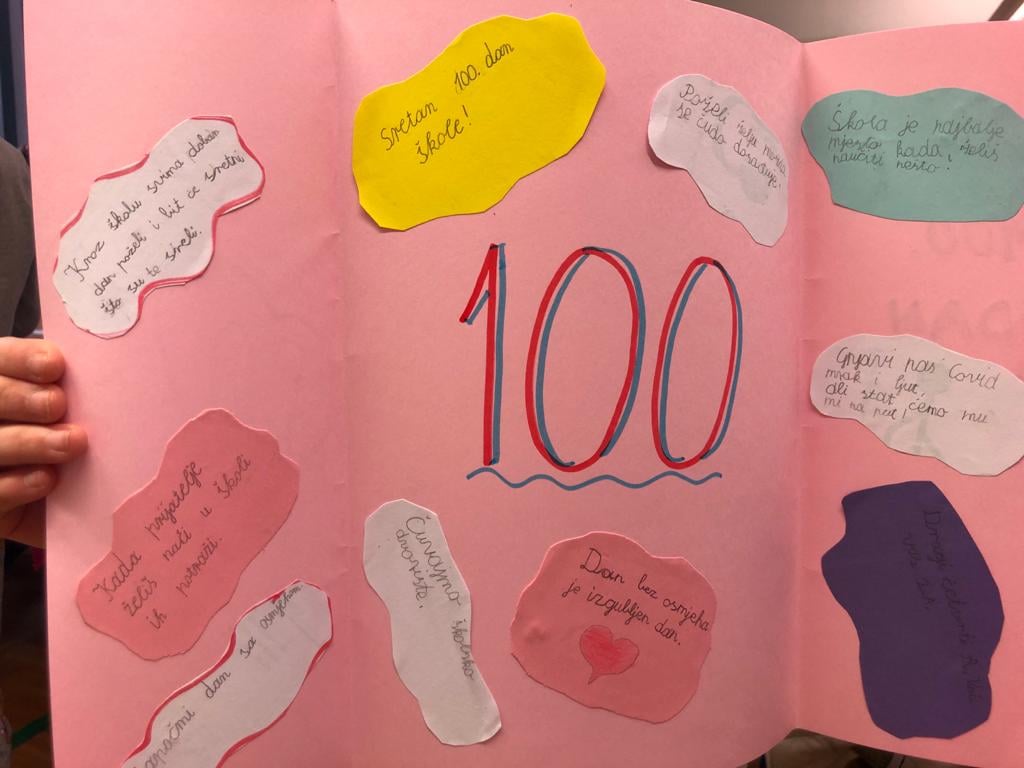 Sretan 100. dan
škole!
Poželi želju možda
se čudo dogaduje!
Škola je najbolje
mjesto kada želiš
naučiti nešto!
Kroz školu svima dobar
dan poželi i bit će sretni
što su te sreli.
100
Grjavi nas Covid
mrak i ljut,
ali stat ćemo mu
mi na put!
Kada prijatelje
želiš naći u školi
ih potraži.
Čuvajmo školsko
dvorište.
Dan bez osmjeha
je izgubljen dan.
dan sa osmjehom.
Dragi
vas